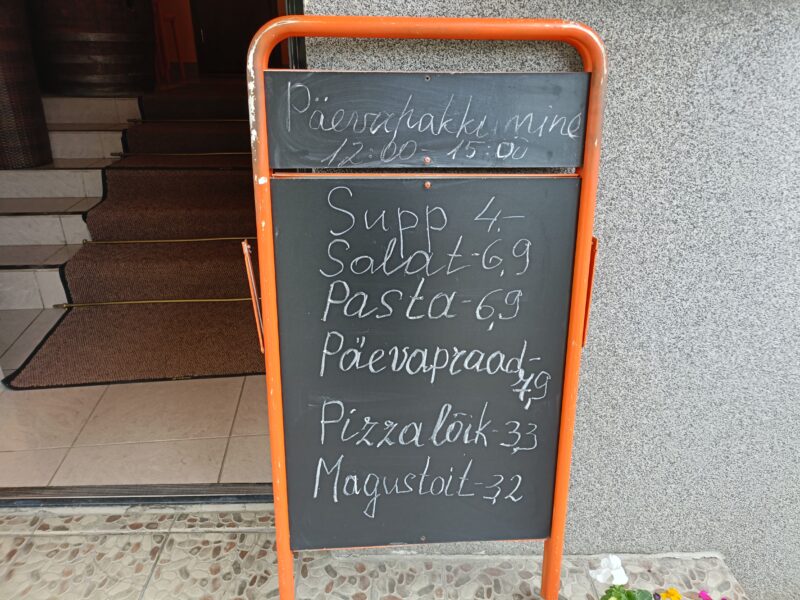 Päevapakkumine
12:00 - 15:00
Supp 4.-
Salat - 6,9
Pasta - 6,9
Päevapraad -
7,9
Pizzalõik - 3,3
Magustoit - 3,2